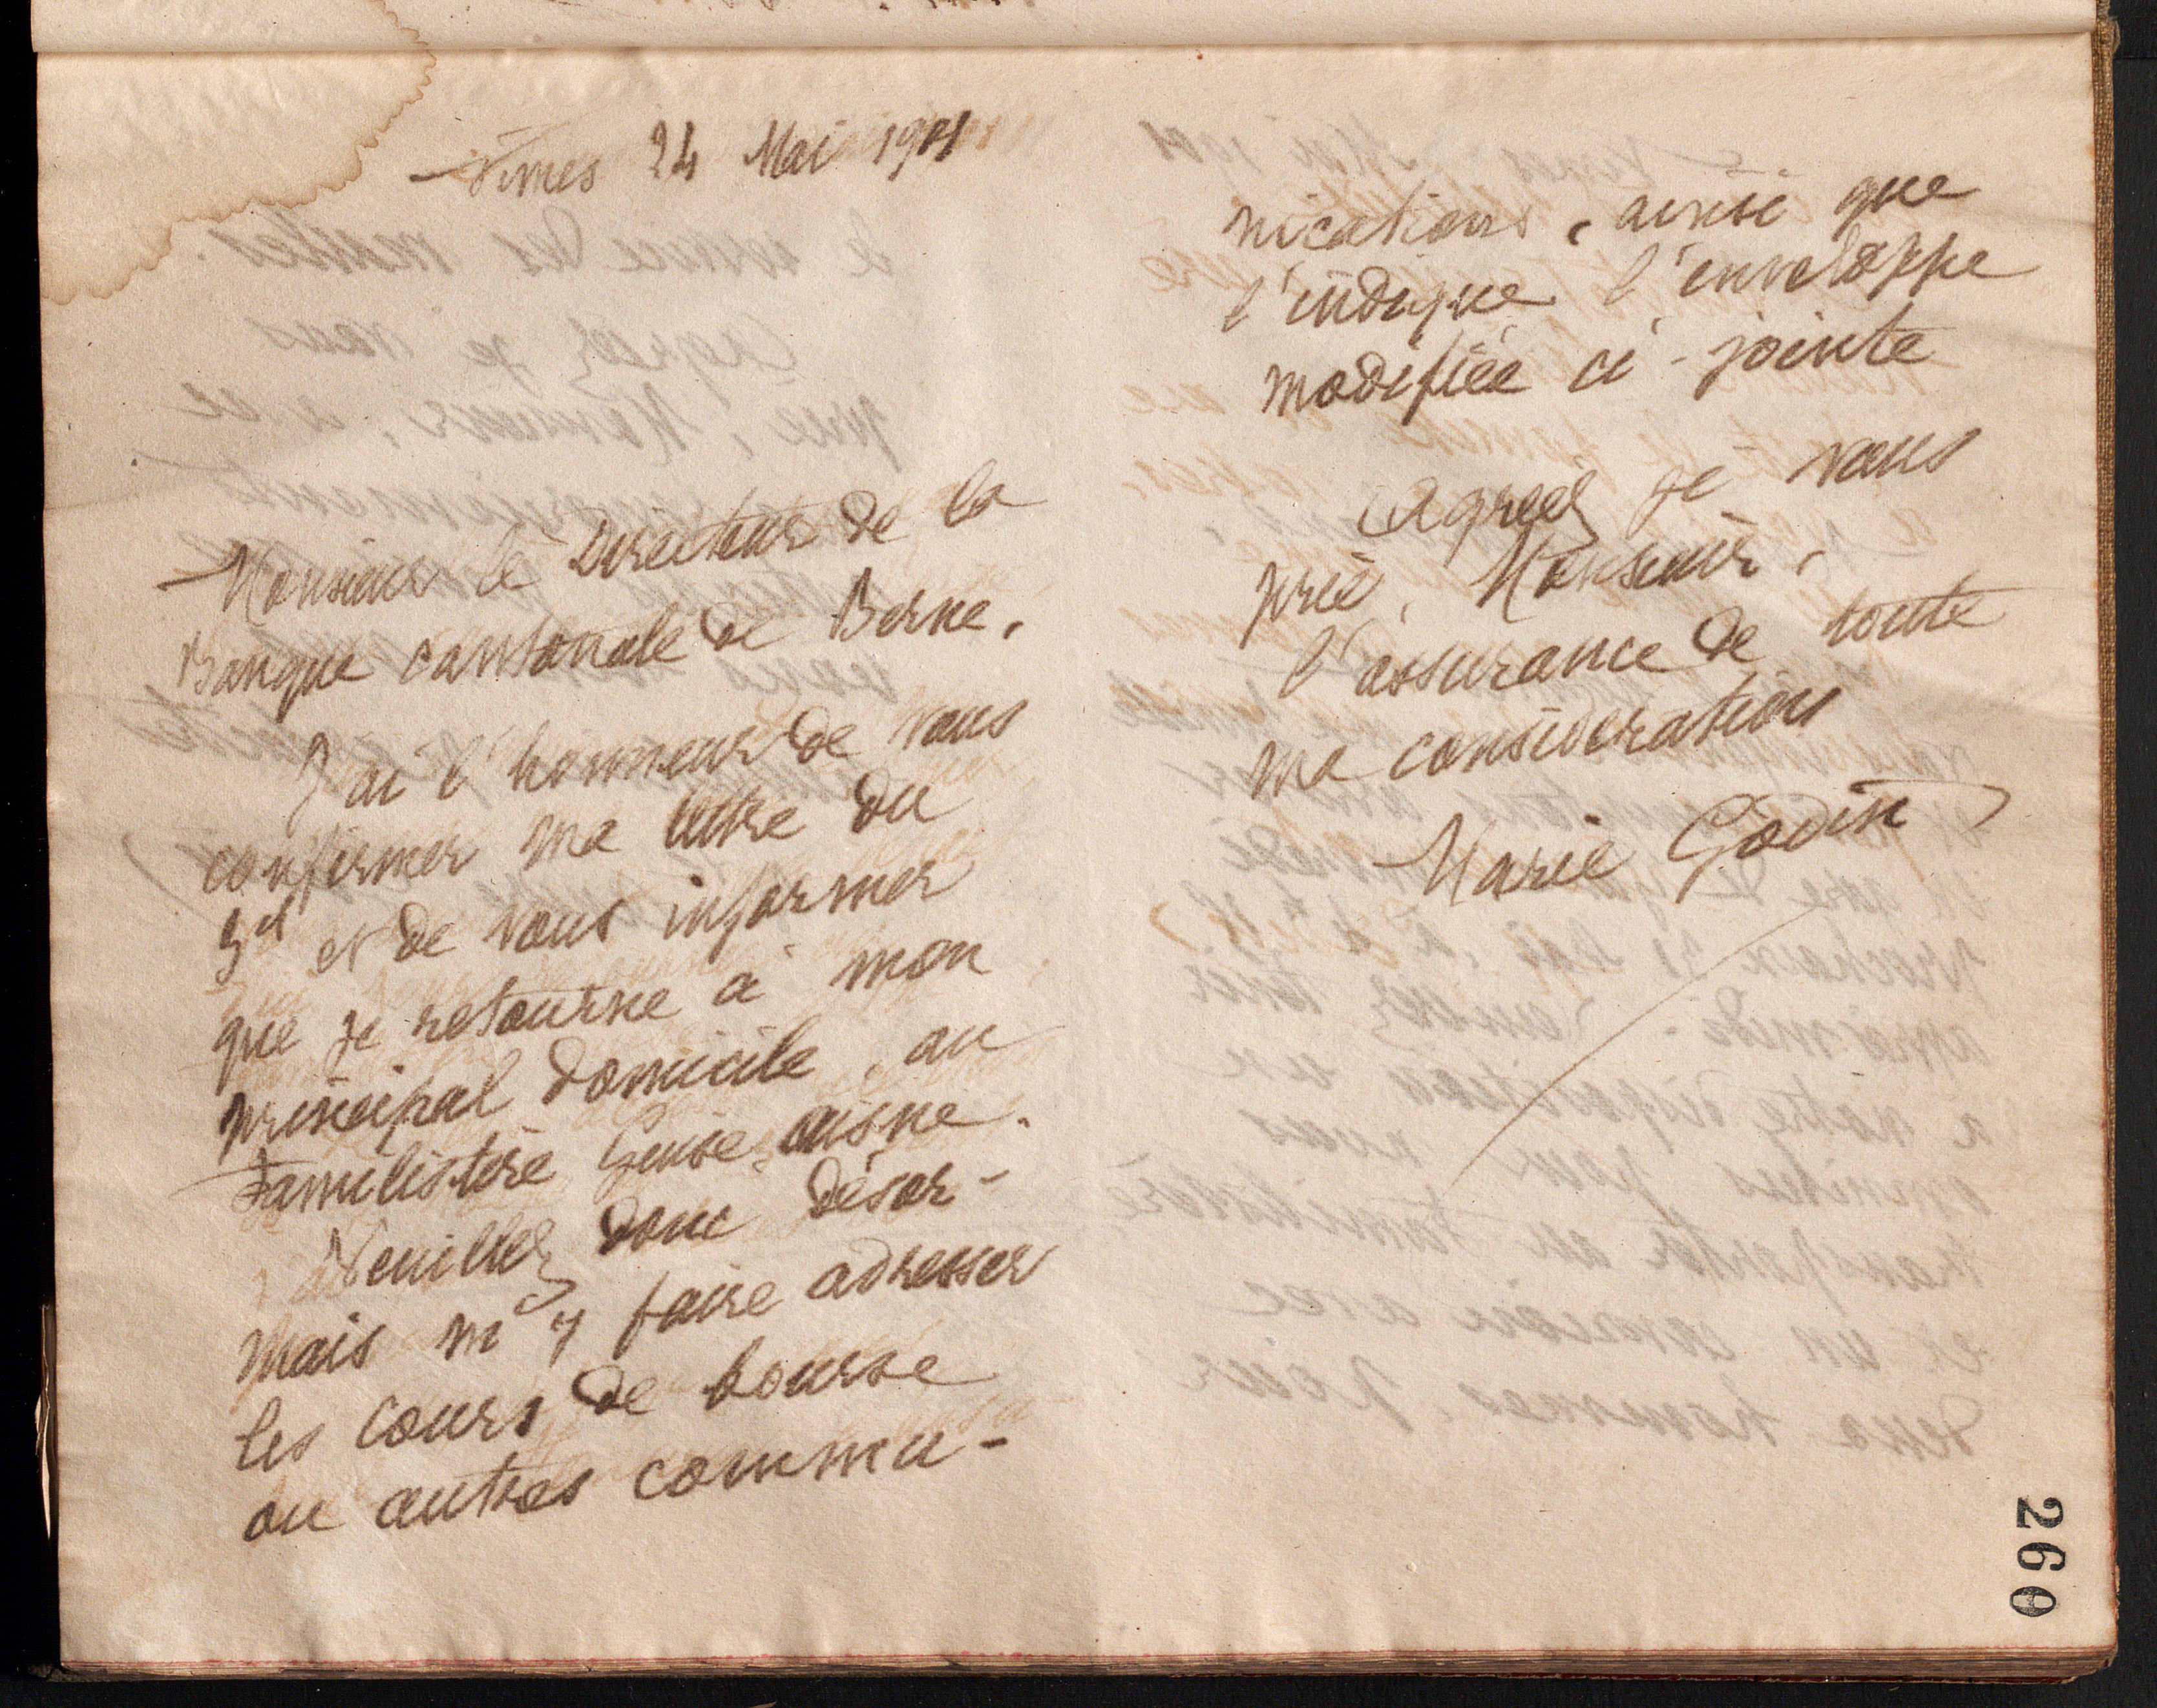 Nimes 24 Mai 1901
Monsieur le Directeur de la
Banque cantonale de Berne.
J'ai l'honneur de vous
confirmer ma lettre du
et de vous informer
que je retourne à mon
principal domicile, au
Familistère Guise, aisne.
Veuillez donc désor-
mais m'y faire adresser
les cours de bourse
ou autres commu-
nications, ainsi que
l'indique l'enveloppe
modifiée ci-jointe
Agréez je vous
prie, Monsieur,
l'assurance de toute
ma considération
Marie Godin
260